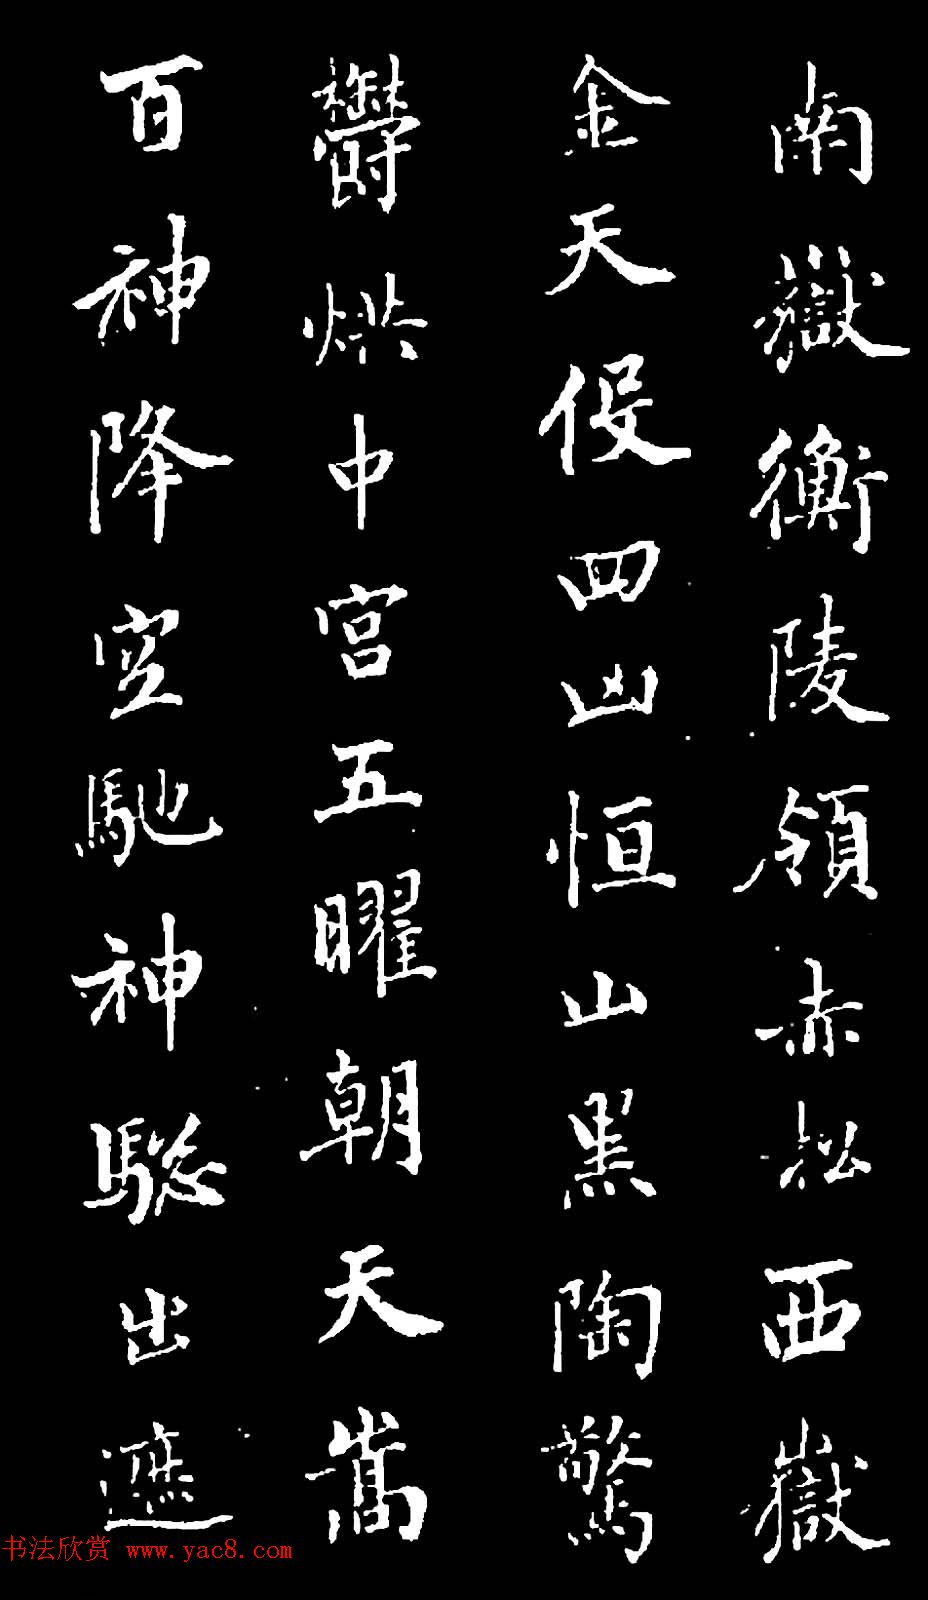 南嶽衡陵領赤松西嶽
金天伇四凶恒山黑陶驚
欝烘中宮五曜朝天嵩
百神降空馳神驄出遮
书法欣赏 www.yac8.com